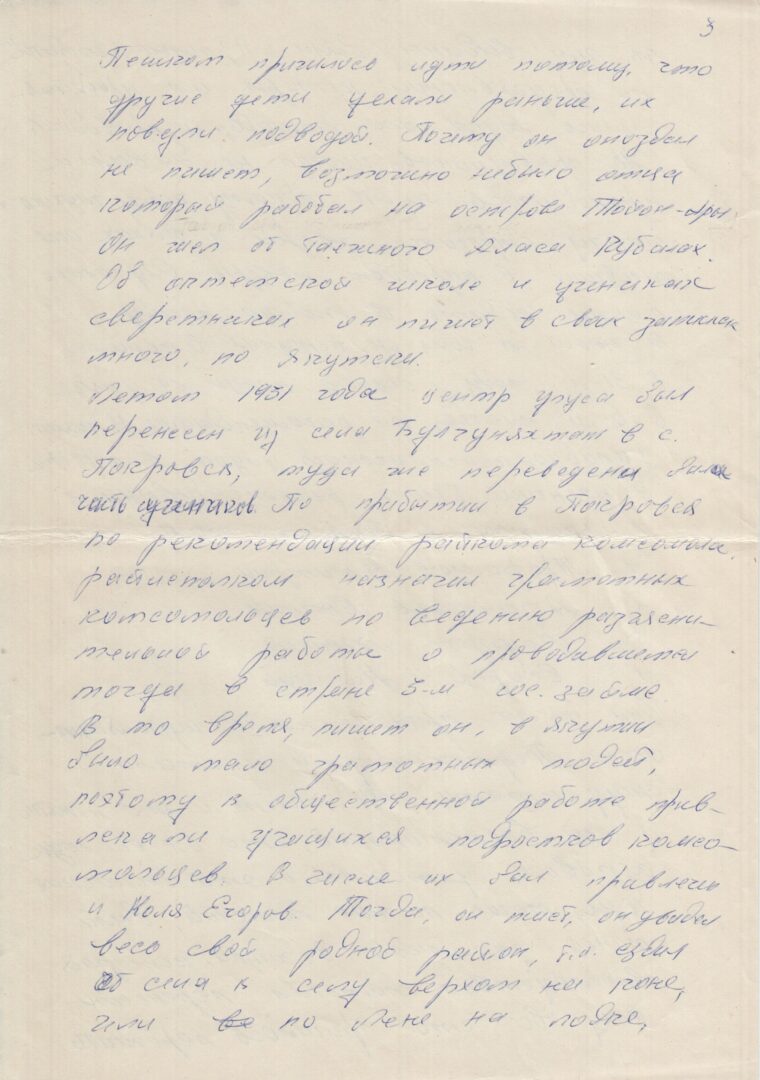 3
Пешком пришлось идти потому, что
другие дети уехали раньше, их
повезли подводой. Почему он опоздал
не пишет, возможно небыло отца
который работал на острове Тойон-Ары.
Он шел от таежного Аласа Кубалах.
Об октемской школе и учениках
сверстниках он пишет в своих записках
много, по якутски.
Летом 1931 года центр улуса был
перенесен из села Булгунняхтах в с.
Покровск, туда же переведены были
часть учеников. По прибытии в Покровск
по рекомендации райкома комсомола,
райисполком назначил грамотных
комсомольцев по ведению разъясни-
тельной работы о проводившемся
тогда в стране 5-м гос. займе.
В то время, пишет он, в Якутии
было мало грамотных людей,
поэтому к общественной работе прив-
лекали учащихся подростков комсо-
мольцев. В числе их был привлечен
и Коля Егоров. Тогда, он пишет, он увидел
весь свой родной район, т.к. ездил
от села к селу верхом на коне,
или по Лене на лодке,